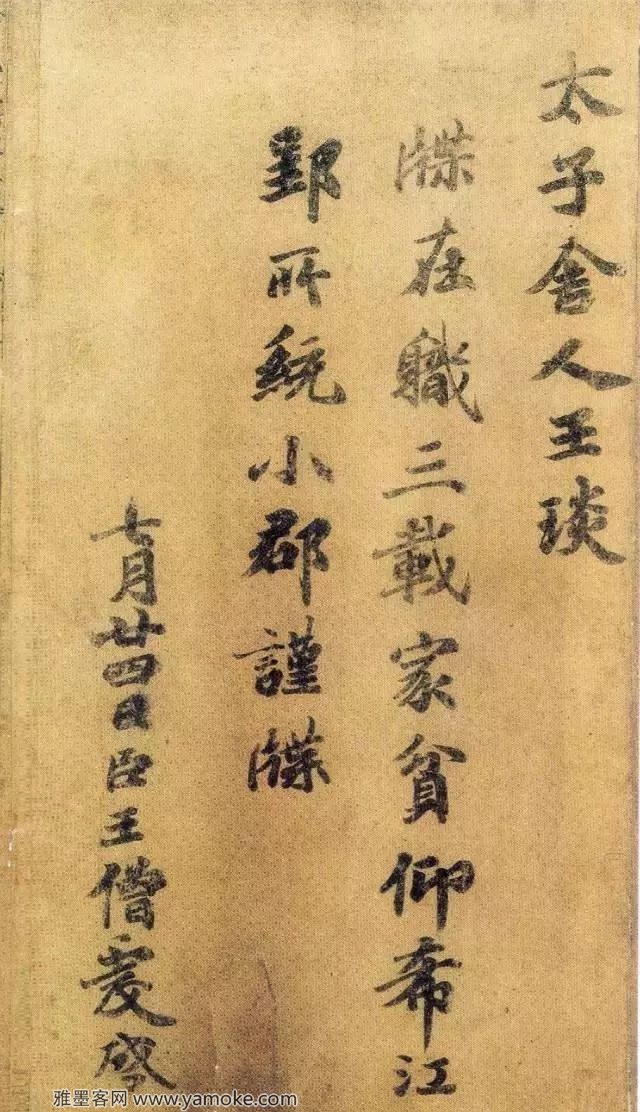 太子舍人王琰
牒在職三載家貧仰希江
郢所統小郡謹牒
七月廿四日臣王僧虔啓
雅墨客网 www.yamoke.com